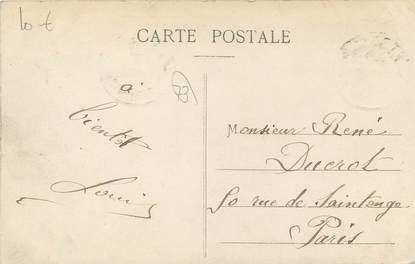 10 €
CARTE POSTALE
à
bientôt
Louis
Monsieur René
Ducrot
50 rue de Saintonge
Paris